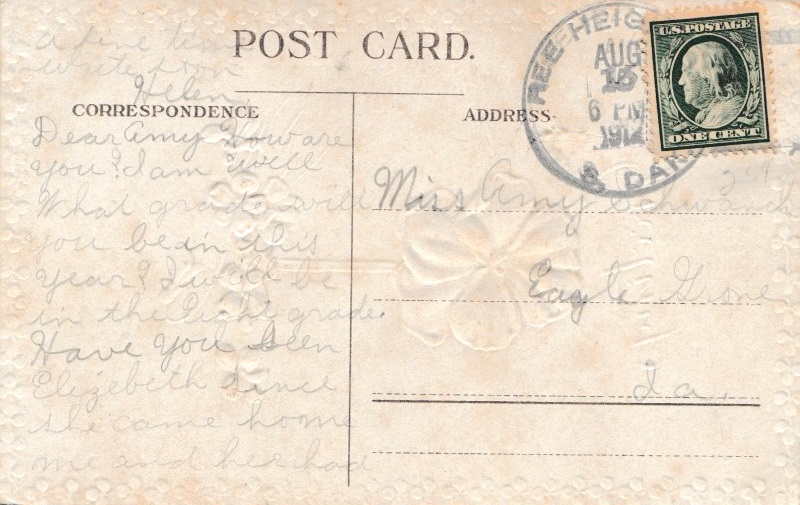 a fine time
write soon
Helen
POST CARD.
CORRESPONDENCE
ADDRESS
Dear Amy How are
you? I am well
What grade will
you be in this
year? I will be
in the Eight grade.
Have you seen
Elizebeth since
she came home
me and her had
REE-HEIG
AUG
15
6 PM
1912
S. DAK
U.S. POSTAGE
ONE CENT
Miss Amy
Eagle Grove
Ia.